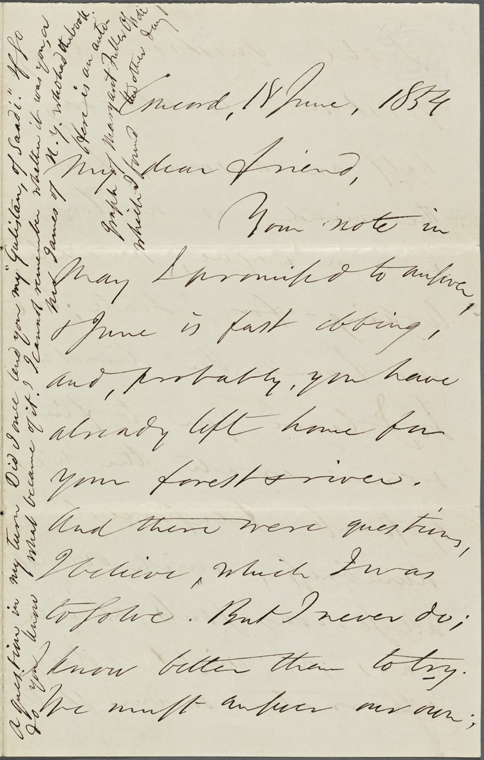 Concord, 18 June, 1854
My dear friend,
Your note in
May I promised to answer,
& June is fast ebbing,
and, probably, you have
already left home for
your forest & river.
And there were questions,
I believe, which I was
to solve. But I never do;
know better than to try.
We must answer our own;
A question in my turn Did I once lend you my "Gulistan, of Saadi." If so
do you know what became of it? I cannot remember whether it was you, or
Mrs James of N.Y. who had the book.
Here is an auto-
graph of Margaret Fuller
which I found the other day!